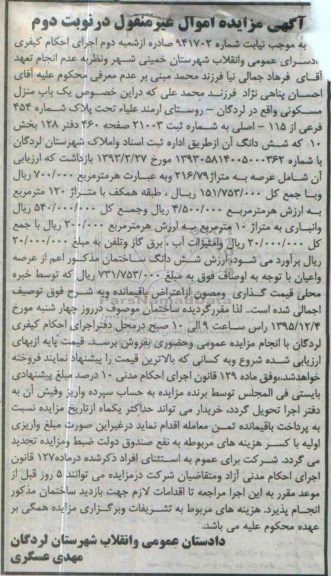 آگهی مزایده اموال غیرمنقول در نوبت دوم
به موجب نیابت شماره ۹۴۱۷۰۲ صادره از شعبه دوم اجرای احکام کیفری
دادسرای عمومی وانقلاب شهرستان خمینی شهر ونظربه عدم انجام تعهد
آقای فرهاد جمالی نیا فرزند محمد مبنی بر عدم معرفی محکوم علیه آقای
احسان پناهی نژاد فرزند محمد علی که دراین خصوص یک باب منزل
مسکونی واقع در لردگان - روستای ارمند علیاء تحت پلاک شماره ۴۵۴
فرعی از ۱۱۵ - اصلی به شماره ثبت ۲۱۰۰۳ صفحه ۴۶۰ دفتر ۱۳۸ بخش
۱۰ که شش دانگ آن ازطریق اداره ثبت اسناد واملاک شهرستان لردگان
با شماره ۱۳۹۳۰۵۸۱۴۰۰۵۰۰۰۳۶۲ مورخ ۱۳۹۳/۲/۲۷ بازداشت که ارزیابی
آن شامل عرصه به متراژ ۲۱۶/۷۹ وبه عبارت هرمترمربع ۷۰۰/۰۰۰ ریال
وبا جمع کل ۱۵۱/۷۵۳/۰۰۰ ریال ، طبقه همکف با متراژ ۱۲۰ مترمربع
به ارزش هرمترمربع ۴/۵۰۰/۰۰۰ ریال وجمع کل ۵۴۰/۰۰۰/۰۰۰ ریال
وانباری به متراژ ۱۰ مترمربع به ارزش هرمترمربع ۲۰۰/۰۰۰ ریال با جمع
کل ۲۰/۰۰۰/۰۰۰ ریال وامتیازات آب ، برق گاز وتلفن به مبلغ ۲۰/۰۰۰/۰۰۰
ریال برآورد می شود، ارزش شش دانگ ساختمان مذکور اعم از عرصه
واعیان با توجه به اوصاف فوق به مبلغ ۷۳۱/۷۵۳/۰۰۰ ریال که توسط خبره
محلی قیمت گذاری ومصون ازاعتراض باقیمانده وبه شرح فوق توصیف
اجمالی شده است.. لذا مقررگردیده ساختمان موصوف درروز چهار شنبه مورخ
۱۳۹۵/۱۲/۴ راس ساعت ۹ الی ۱۰ صبح درمحل دفتراجرای احکام کیفری
لردگان با انجام مزایده عمومی وحضوری بفروش برسد. قیمت پایه ازبهای
ارزیابی شده شروع وبه کسانی که بالاترین قیمت را پیشنهاد نمایند فروخته
خواهدشد،وفق ماده ۱۲۹ قانون اجرای احکام مدنی ۱۰ درصد مبلغ پیشنهادی
بایستی فی المجلس توسط برنده مزایده به حساب سپرده واریز وفیش آن به
دفتر اجرا تحویل گردد، خریدار می تواند حداکثر یکماه ازتاریخ مزایده نسبت
به پرداخت باقیمانده ثمن معامله اقدام نماید درغیراین صورت مبلغ واریزی
اولیه با کسر هزینه های مربوطه به نفع صندوق دولت ضبط ومزایده تجدید
می گردد. شرکت برای عموم به استثنای افراد ذکرشده درماده۱۲۷ قانون
اجرای احکام مدنی آزاد ومتقاضیان شرکت درمزایده می توانند ۵ روز قبل از
موعد مقرر به این اجرا مراجعه تا اقدامات لازم جهت بازدید ساختمان مذکور
انجام پذیرد. هزینه های مربوط به تشریفات وبرگزاری مزایده همگی بر
عهده محکوم علیه می باشد.
دادستان عمومی وانقلاب شهرستان لردگان
مهدی عسگری